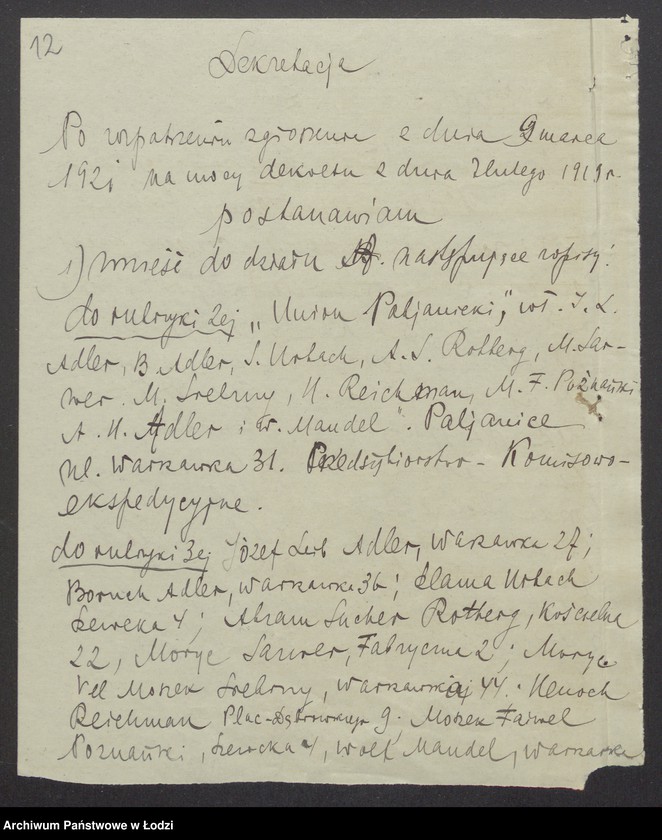 12
Dekretacja
Po rozpatrzeniu zgłoszenia z dnia 9 marca
1921 na mocy dekretu z dnia 7 lutego 1919 r.
postanawiam
1) wnieść do działu następujące wpisy:
do rubryki 2ej „Union Pabjanicki", wł. J. L.
Adler, B. Adler, S. Urbach, A. S. Rotberg, M. Sar-
wer. M. Srebrny, H. Reichman, M. F. Poznański
A. H. Adler i W. Mandel". Pabjanice
ul. Warszawska 31. Przedsiębiorstwo - Komisowo-
ekspedycyjne.
do rubryki 3ej Józef Leib Adler, Warszawska 27;
Boruch Adler, Warszawska 36; Szlama Urbach
Szewcka 4; Abram Sucher Rotberg, Kościelna
22, Moryc Sarwer, Fabryczna 2; Moryc
vel Moszek Srebrny, Warszawskiej 44. Henoch
Reichman Plac-Dąbrowskiego 9. Moszek Fajwel
Poznański, Szewcka 4, Wolf Mandel, Warszawska
Archiwum Państwowe w Łodzi